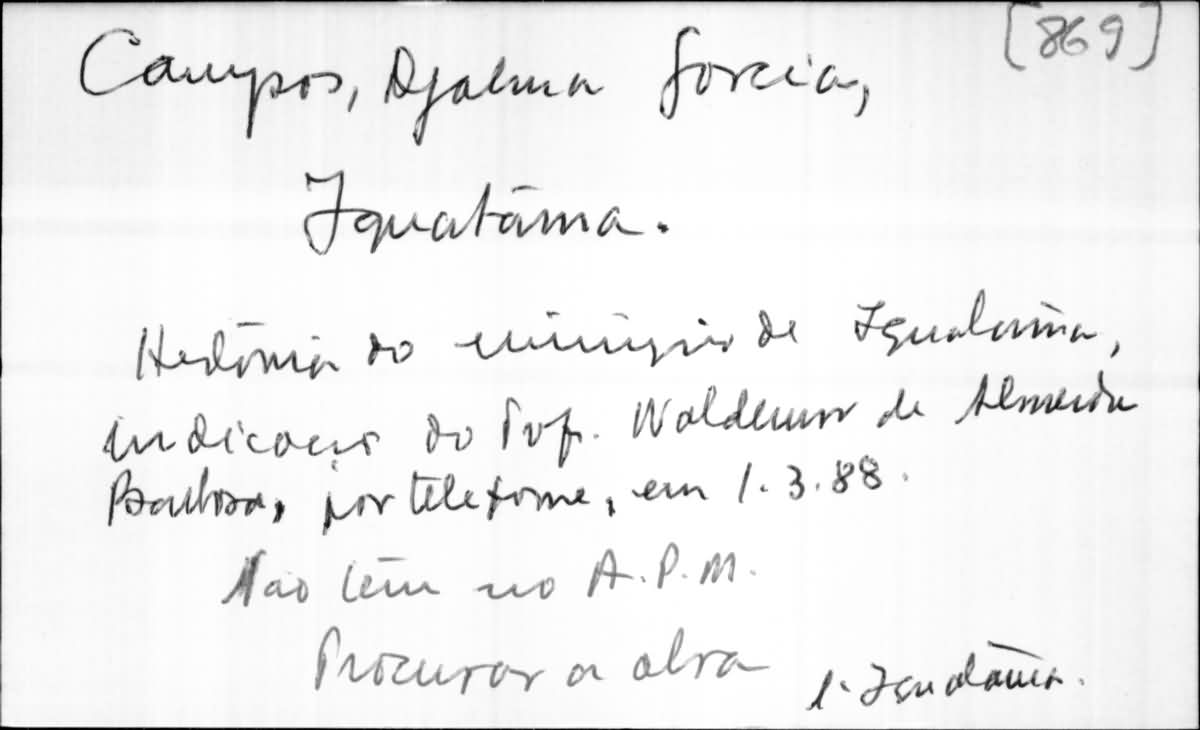 [869]
Campos, Djalma Garcia,
Iguatama.
História do município de Iguatama,
indicação do Prof. Waldemar de Almeida
Barbosa, por telefone, em 1.3.88.
Não têm no A.P.M.
Procurar a obra
1. Iguatama.